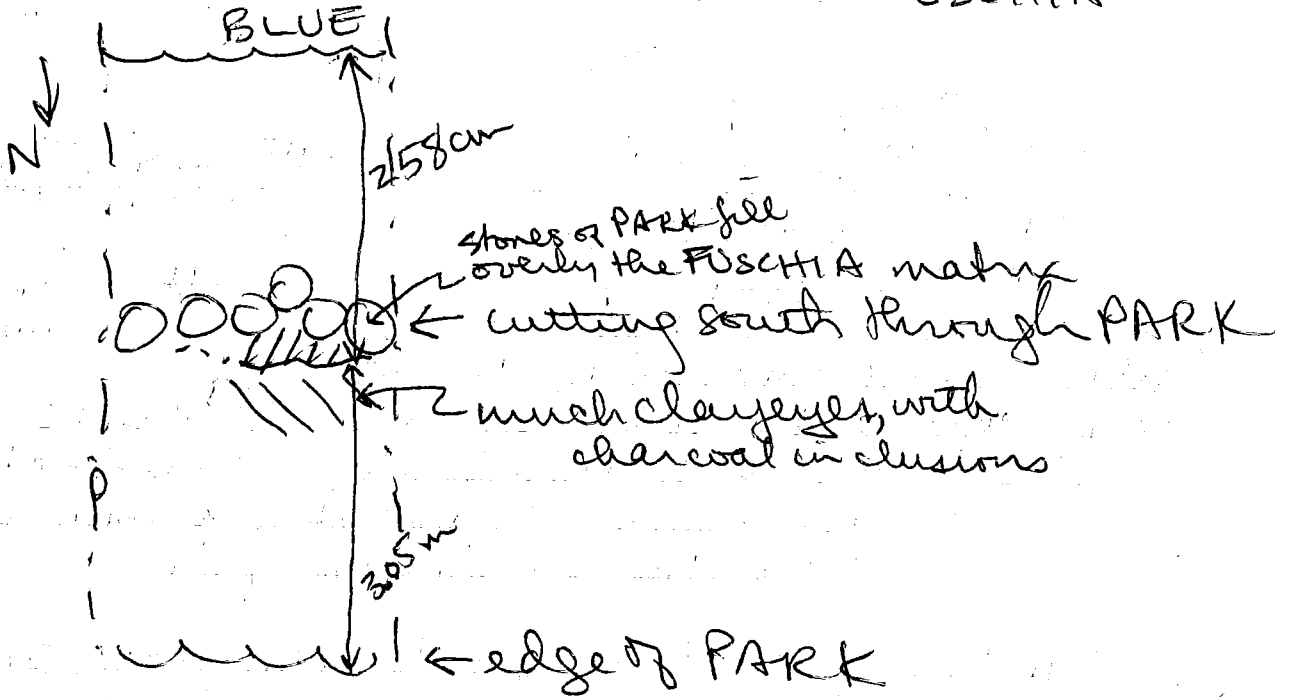 BLUE
N
258cm
stones of PARK fill
overly the FUSCHIA matrix
cutting south through PARK
much clayeyer, with
charcoal inclusions
P
3.05m
edge of PARK